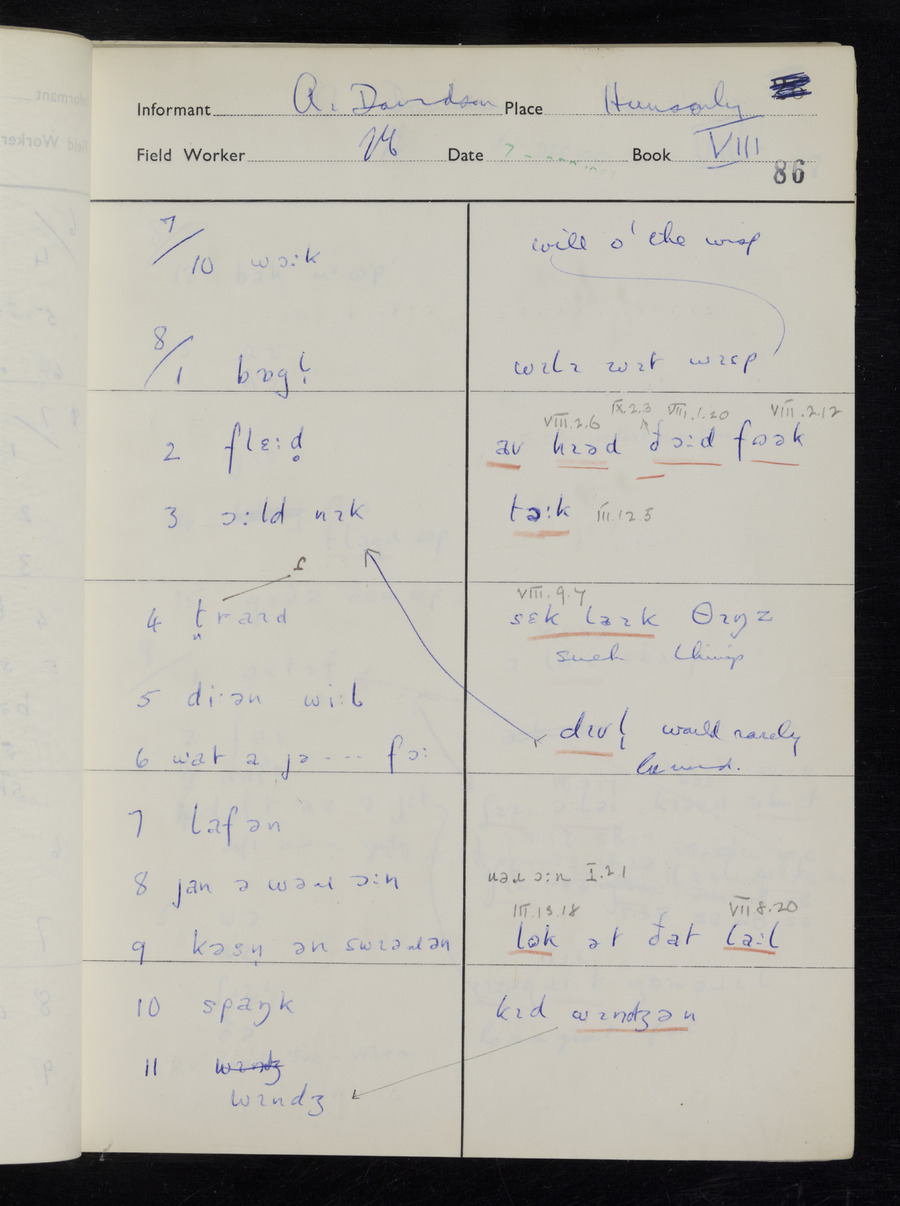 Informant A. Davidson Place Hunsonby
Field Worker Date Book VIII
86
7/10 wɔːk
will o' the wisp
8/1 bɒgl̩
wɪlɪ wɪt wɪsp
2 flɛːd̥
VIII.2.6 IX.2.3 VIII.1.20 VIII.2.12
av hɪəd ðɔːd fɔək
3 ɔːld nɪk
tɔːk III.12.5
4 traɪd
VIII.9.7
sɛk laɪk θɪŋz
such things
5 diːən wiːl
dɪvl̩ would rarely
be used.
6 wat a jə --- fɔː
7 lafən
8 jan ə wəɹ ɔːn
wəɹ ɔːn I.2.1
III.13.18 VII.8.20
9 kəsn̩ ən swɪəɹən
lək ət ðat laːl
10 spaŋk
kɪd wɪndʒən
11 wɪndʒ
wɪndʒ